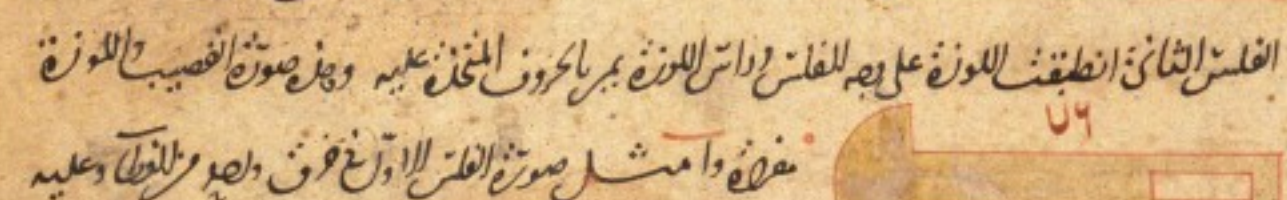 الفلس الثانى انطبقت اللوزة على وجه الفلس وراس اللوزة يمر بالحروف المتخذة عليه وهذه صورة القضيب واللوزة
٧٦
مفردة وا مثل صورة الفلس الاول فى خرق واحد من وعليه